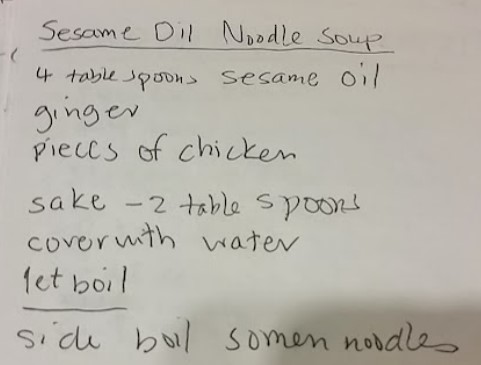 Sesame Oil Noodle Soup
4 table spoons sesame oil
ginger
pieces of chicken
sake - 2 table spoons
cover with water
let boil
side boil somen noodles